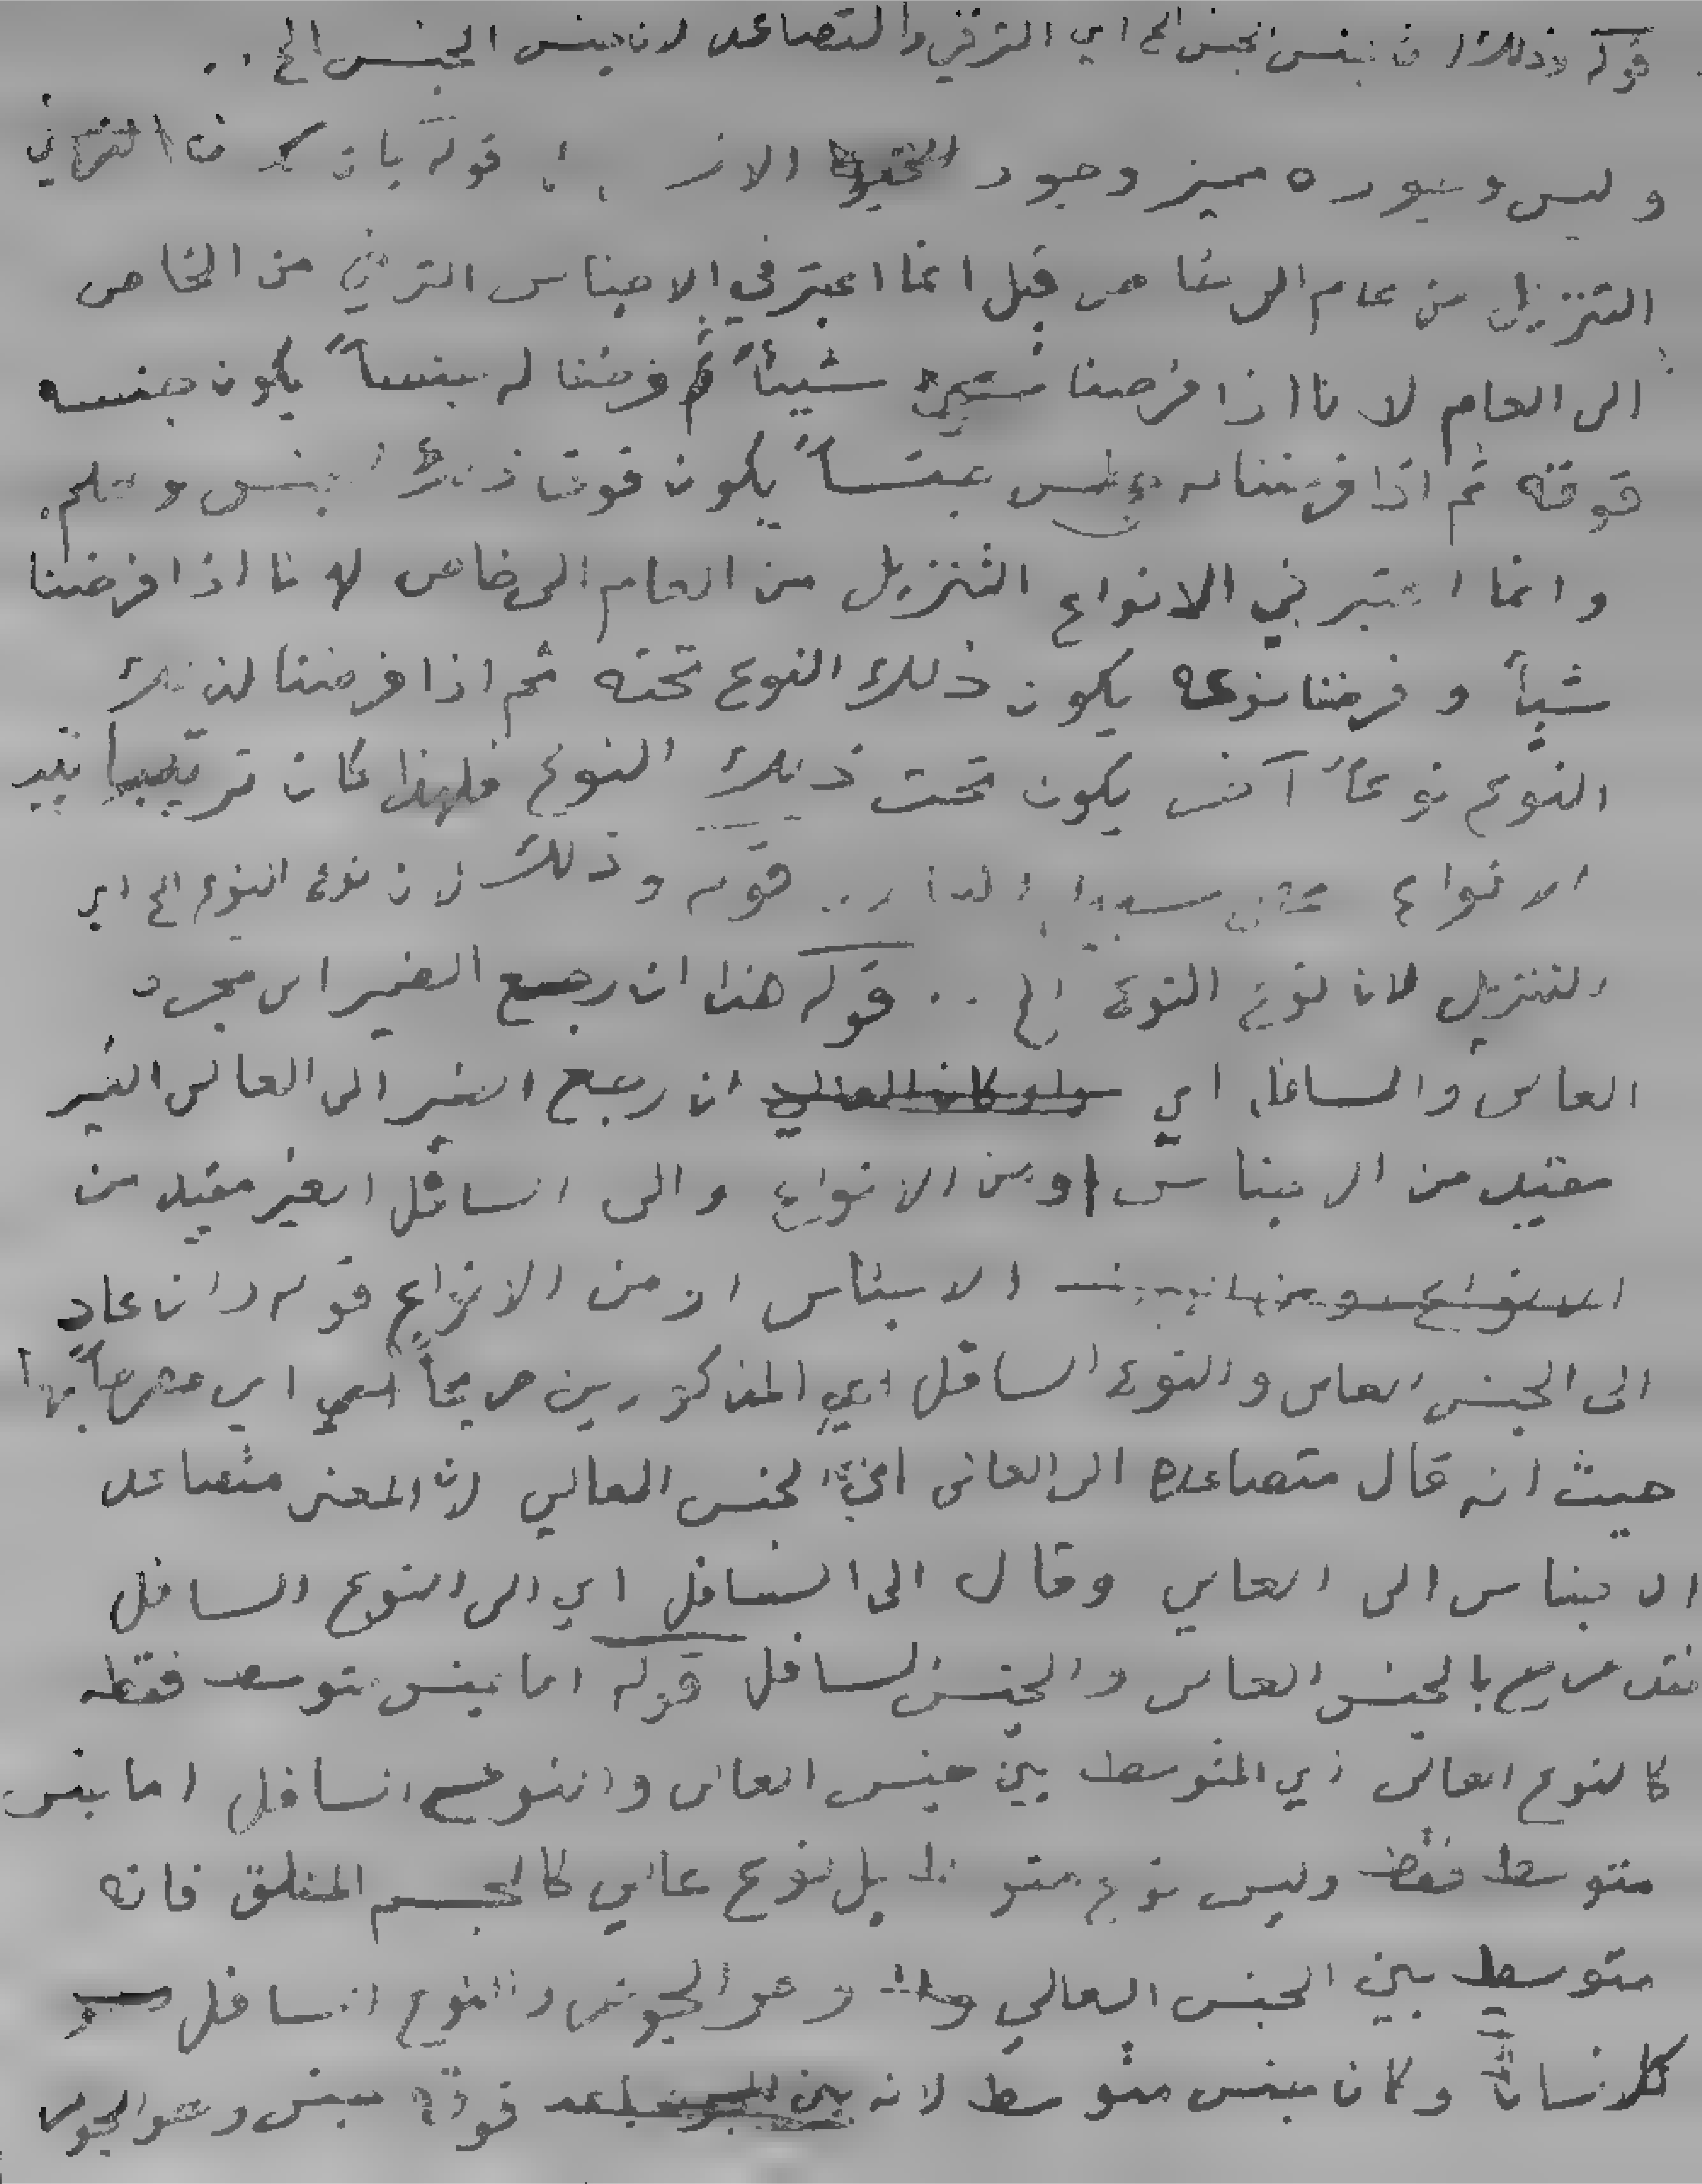 قوله وذلك لان جنس الجنس الخ اي الترقي والتصاعد لان جنس الجنس الخ ..
وليس وجوده مميز وجود الاخر .. قوله بان يكون الترقي
التنزيل من عام الى خاص قيل انما اعتبر في الاجناس الترقي من الخاص
الى العام لانا اذا فرضنا شيئاً ثم فرضنا له جنساً يكون جنسه
فوقه ثم اذا فرضنا له جنساً يكون فوق ذلك الجنس وهلم
وانما اعتبر في الانواع التنزيل من العام الى خاص لانا اذا فرضنا
شيأ و فرضنا نوعه يكون ذلك النوع تحته ثم اذا فرضنا لذلك
النوع نوعاً آخر يكون تحت ذلك النوع فلهذا كان ترتيب
الانواع على سبيل .. قوله وذلك لان نوع النوع الخ اي
التنزيل لان نوع النوع الخ .. قوله هذا ان رجع الضمير الى مجرد
العالي والسافل اي ولو كان العالي ان رجع الضمير الى العالي الغير
مقيد من الاجناس او من الانواع والى السافل الغير مقيد من
الانواع ومن الاجناس او من الانواع قوله وان عاد
الى الجنس العالي والنوع السافل اي المذكورين صريحاً اي مصرحاً بهما
حيث انه قال متصاعده الى العالي اي الجنس العالي لان المعنى متصاعد
الاجناس الى العالي وقال الى السافل اي الى النوع السافل
فقد صرح بالجنس العالي والجنس السافل قوله اما جنس متوسط فقط
كالنوع العالي اي المتوسط بين جنس العالي والنوع السافل اما جنس
متوسط فقط وليس نوع متوسط بل نوع عالي كالجسم المطلق فانه
متوسط بين الجنس العالي وهو الجوهر والنوع السافل
كالانسان وكان جنس متوسط لانه فوقه جنس وهو الجوهر